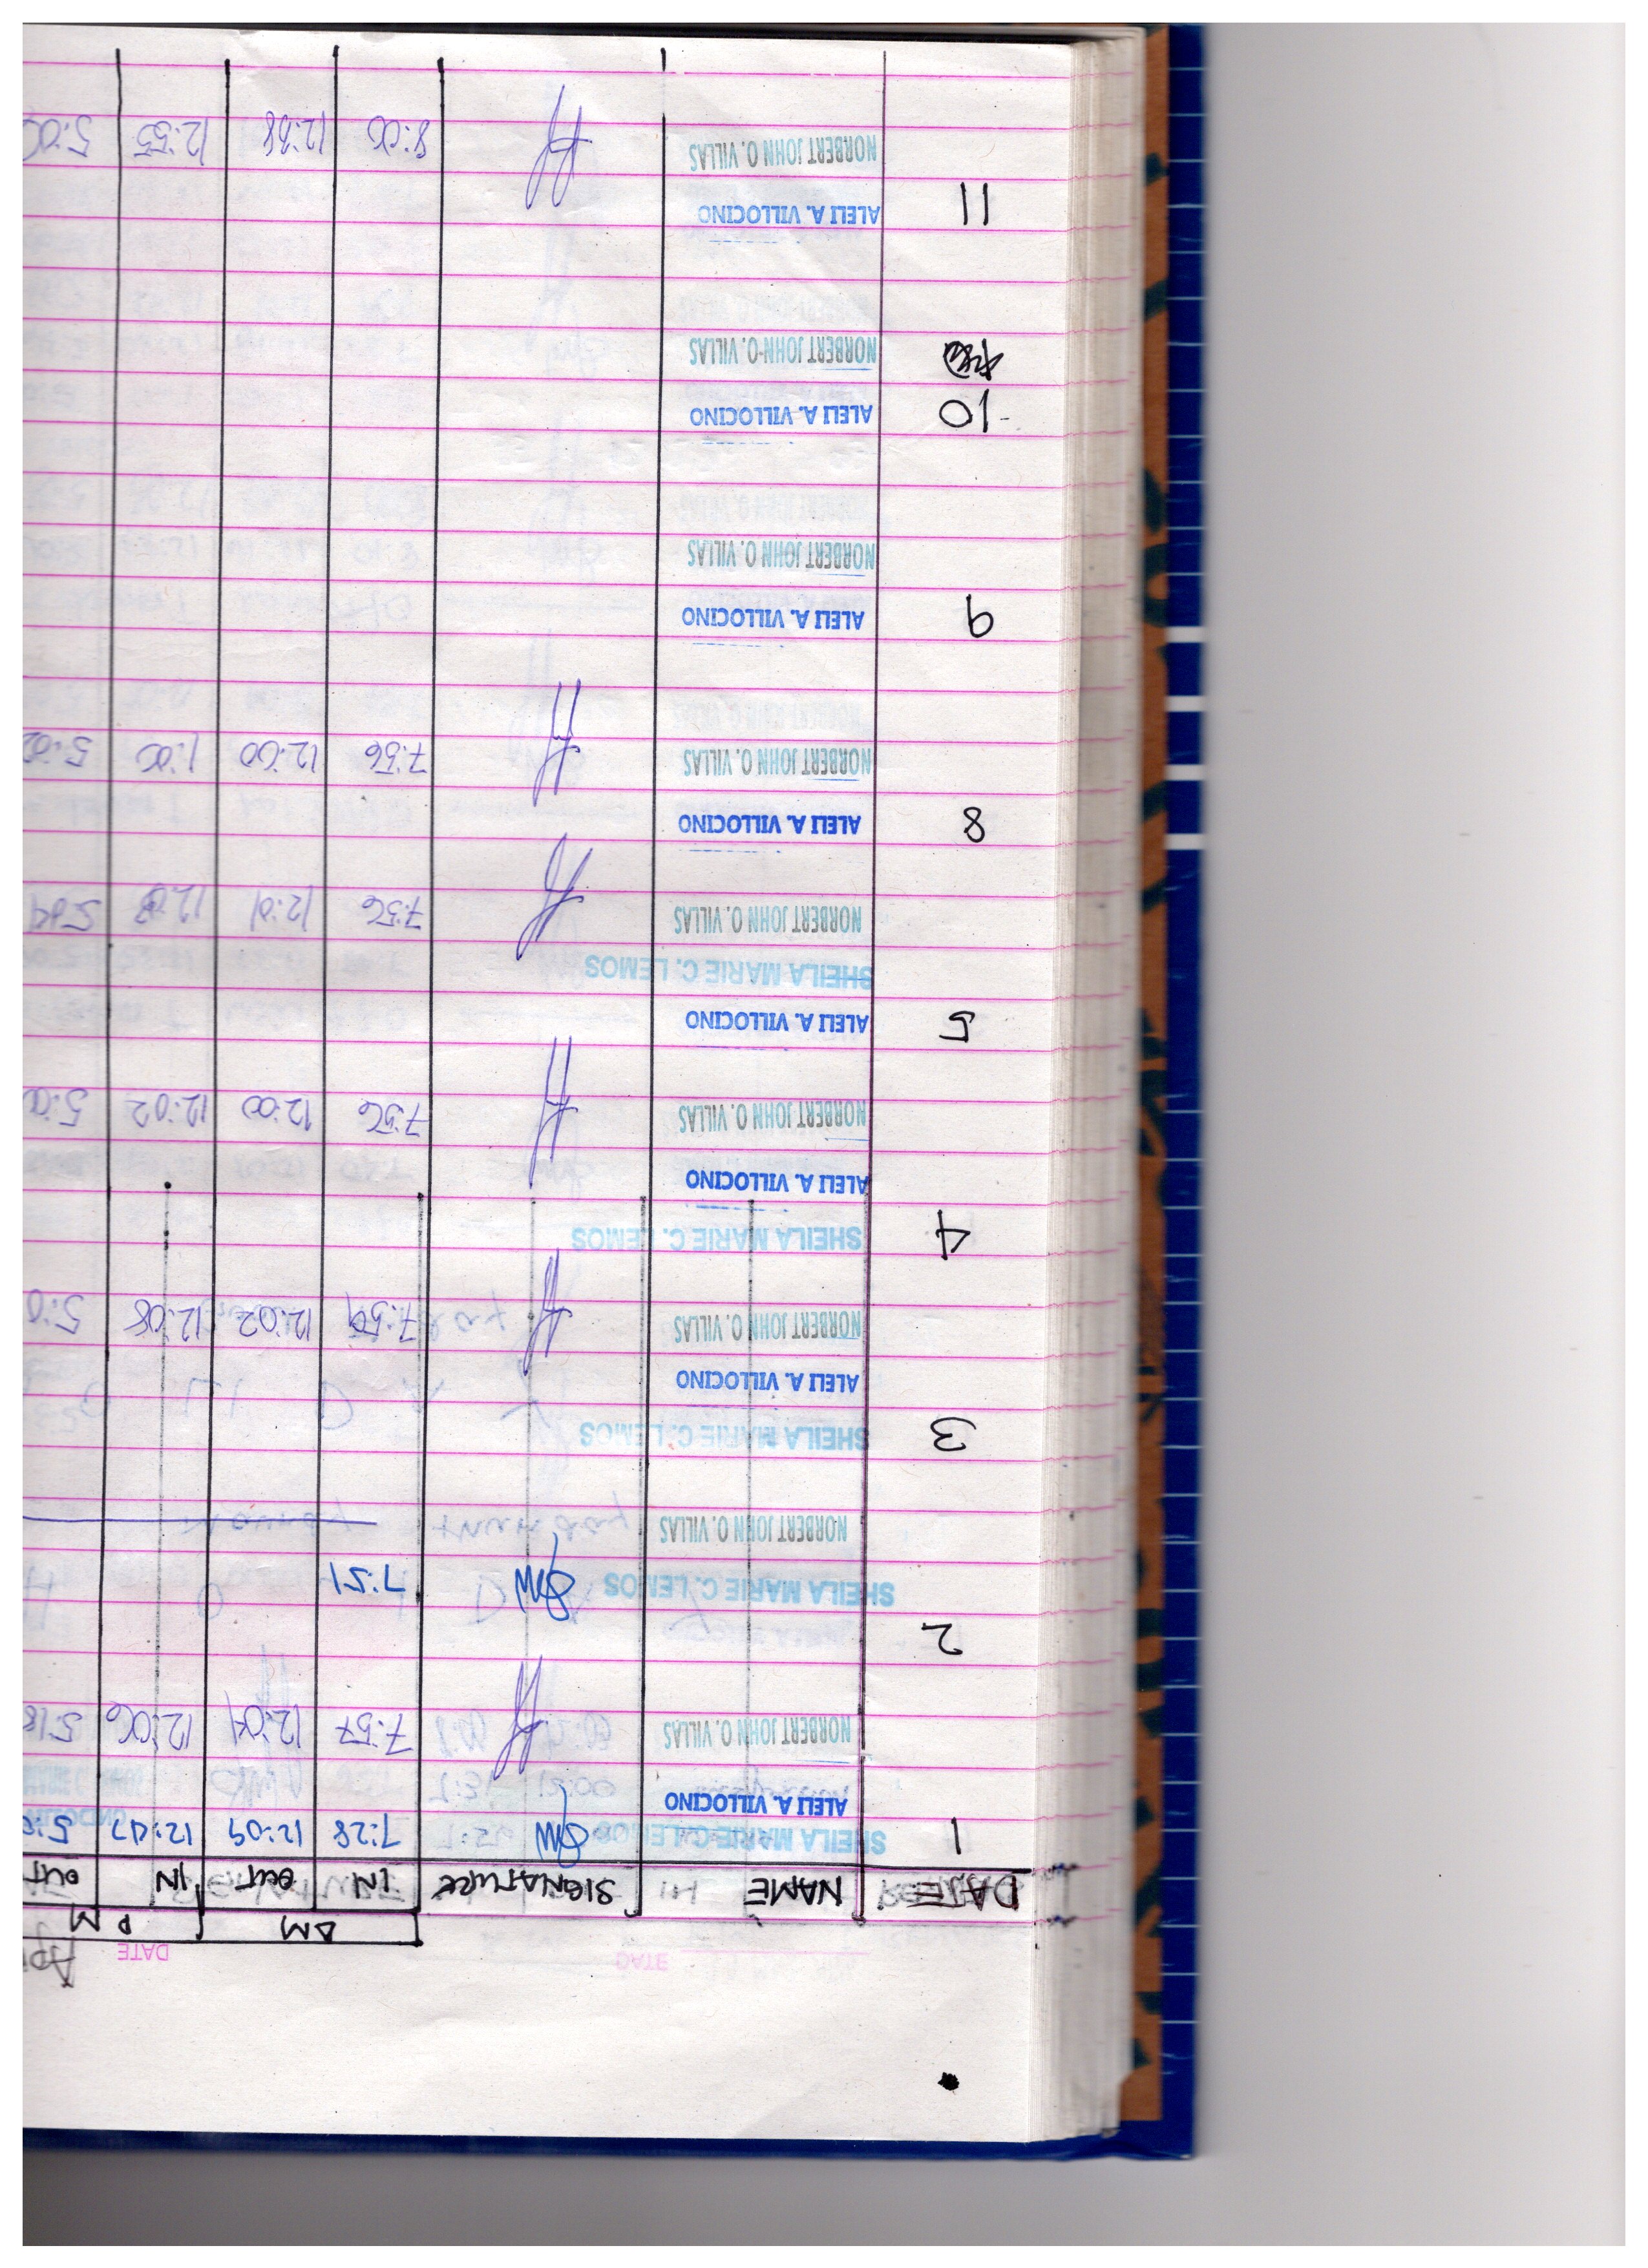 DATE DATE
AM PM
DATE NAME SIGNATURE IN OUT IN OUT
1 SHEILA MARIE C. LEMOS 7:28 12:09 12:47
ALELI A. VILLOCINO
NORBERT JOHN O. VILLAS 7:57 12:04 12:06 5:18
2
SHEILA MARIE C. LEMOS 7:51
NORBERT JOHN O. VILLAS
3 SHEILA MARIE C. LEMOS
ALELI A. VILLOCINO
NORBERT JOHN O. VILLAS 7:59 12:02 12:08 5:0
4 SHEILA MARIE C. LEMOS
ALELI A. VILLOCINO
NORBERT JOHN O. VILLAS 7:56 12:00 12:02 5:00
5 ALELI A. VILLOCINO
SHEILA MARIE C. LEMOS
NORBERT JOHN O. VILLAS 7:56 12:01 12:03 5:04
8 ALELI A. VILLOCINO
NORBERT JOHN O. VILLAS 7:56 12:00 1:00 5:02
9 ALELI A. VILLOCINO
NORBERT JOHN O. VILLAS
10 ALELI A. VILLOCINO
NORBERT JOHN O. VILLAS
11 ALELI A. VILLOCINO
NORBERT JOHN O. VILLAS 8:00 12:38 12:53 5:00